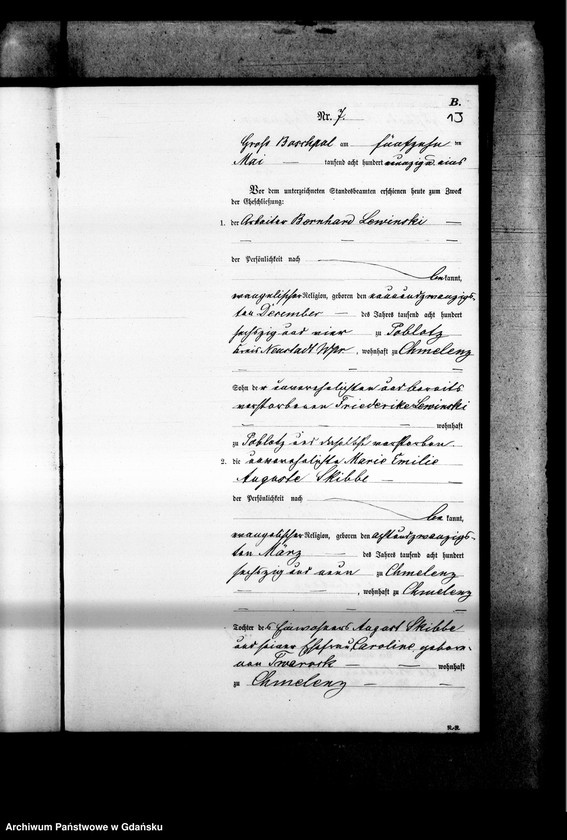 B.
Nr. 7.
13
Gross Boschpol am fünfzehn ten
Mai tausend acht hundert neunzig und eins
Vor dem unterzeichneten Standesbeamten erschienen heute zum Zweck
der Eheschließung:
1. der Arbeiter Bernhard Lewinski
der Persönlichkeit nach
be kannt,
evangelischer Religion, geboren den neunundzwanzigs-
ten December des Jahres tausend acht hundert
sechszig und vier zu Poblotz
Kreis Neustadt Wpr , wohnhaft zu Chmelenz
Sohn der unverehelichten und bereits
verstorbenen Friederike Lewinski
wohnhaft
zu Poblotz und daselbst verstorben.
2. die unverehelichte Marie Emilie
Auguste Skibbe
der Persönlichkeit nach
be kannt,
evangelischer Religion, geboren den achtundzwanzigs-
ten März des Jahres tausend acht hundert
sechszig und neun zu Chmelenz
, wohnhaft zu Chmelenz
Tochter des Einwohners August Skibbe
und seiner Ehefrau Caroline gebore-
nen wohnhaft
zu Chmelenz
Archiwum Państwowe w Gdańsku